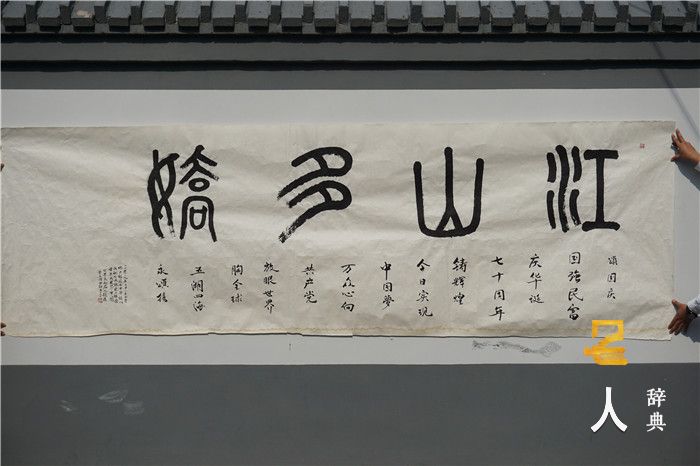 江山多嬌
頌国庆
国强民富
庆华诞
七十周年
铸辉煌
今日实现
中国夢
万众心向
共产党
放眼世界
胸全球
五湖四海
名人
辞典